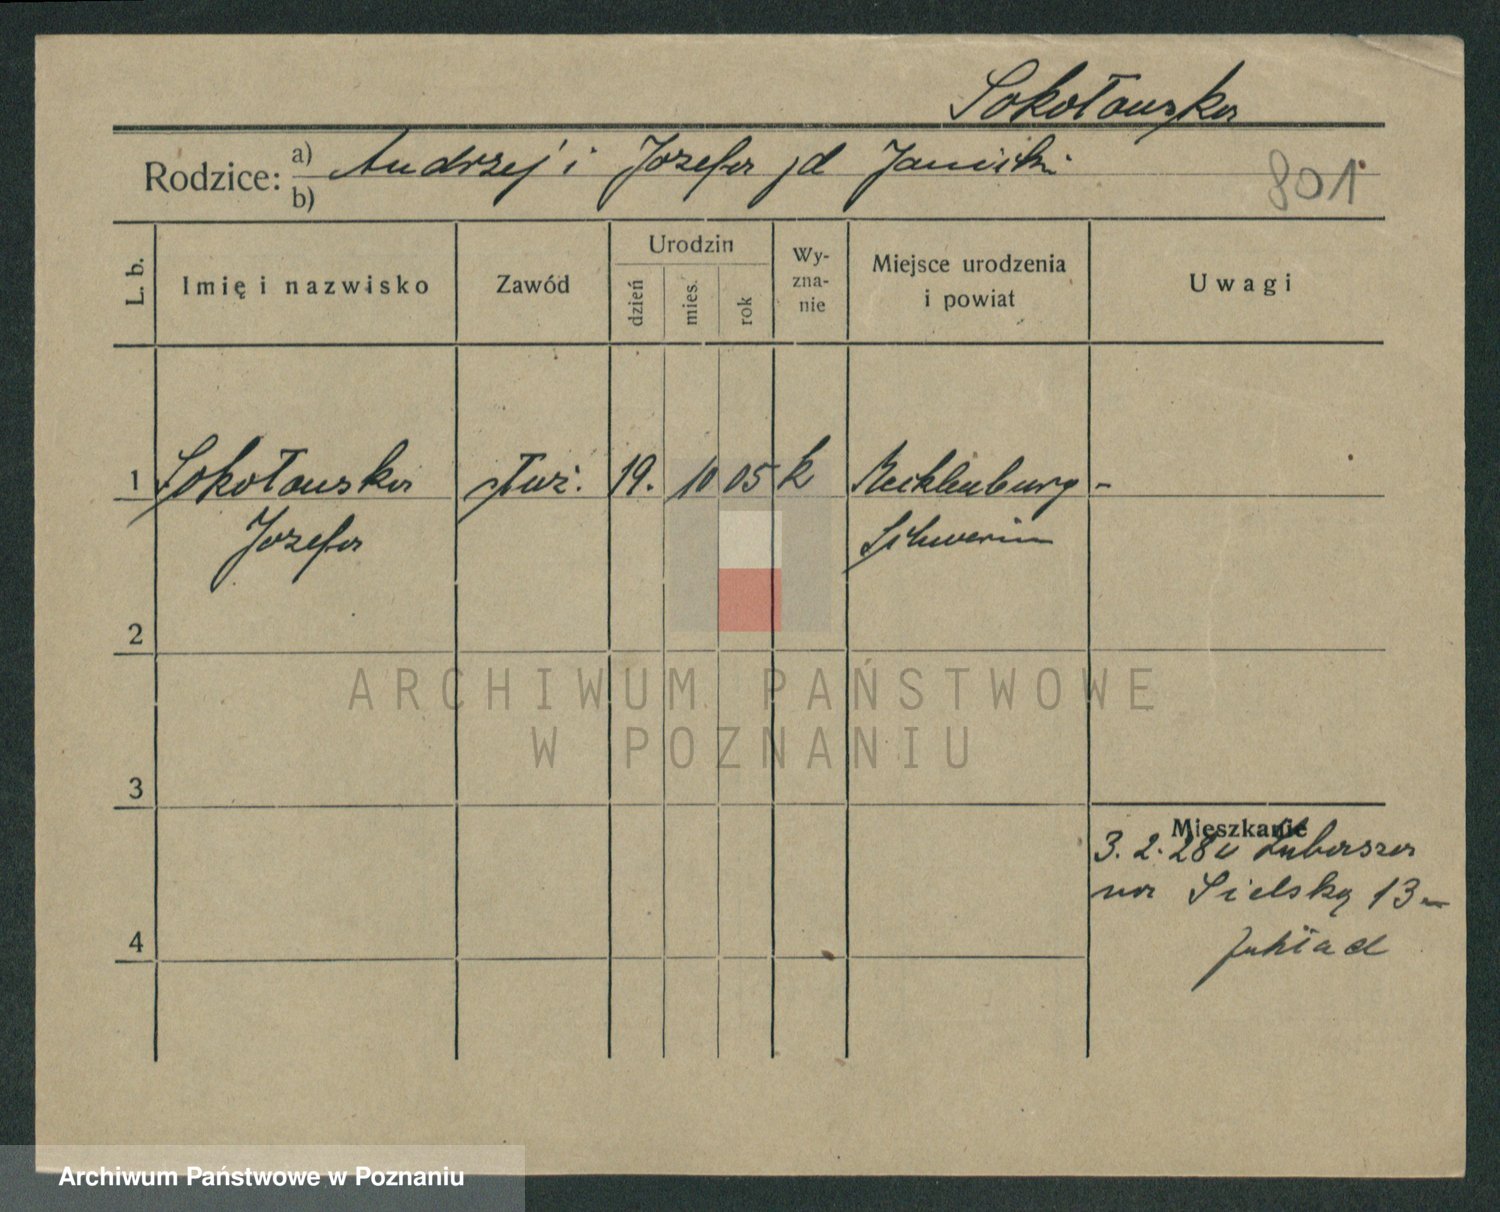 Sokołowska
Rodzice: a) Andrzej i Józefa z d Janicki
b)
801
L. b. Imię i nazwisko Zawód Urodzin dzień mies. rok Wy-zna-nie Miejsce urodzenia i powiat Uwagi
1 Sokołowska służ. 19. 10 05 k Mecklenburg-
Józefa Schwerin
2
3
Mieszkanie
3. 2. 28 z Lubasza
na Sielską 13
4
ARCHIWUM PAŃSTWOWE
W POZNANIU
Archiwum Państwowe w Poznaniu